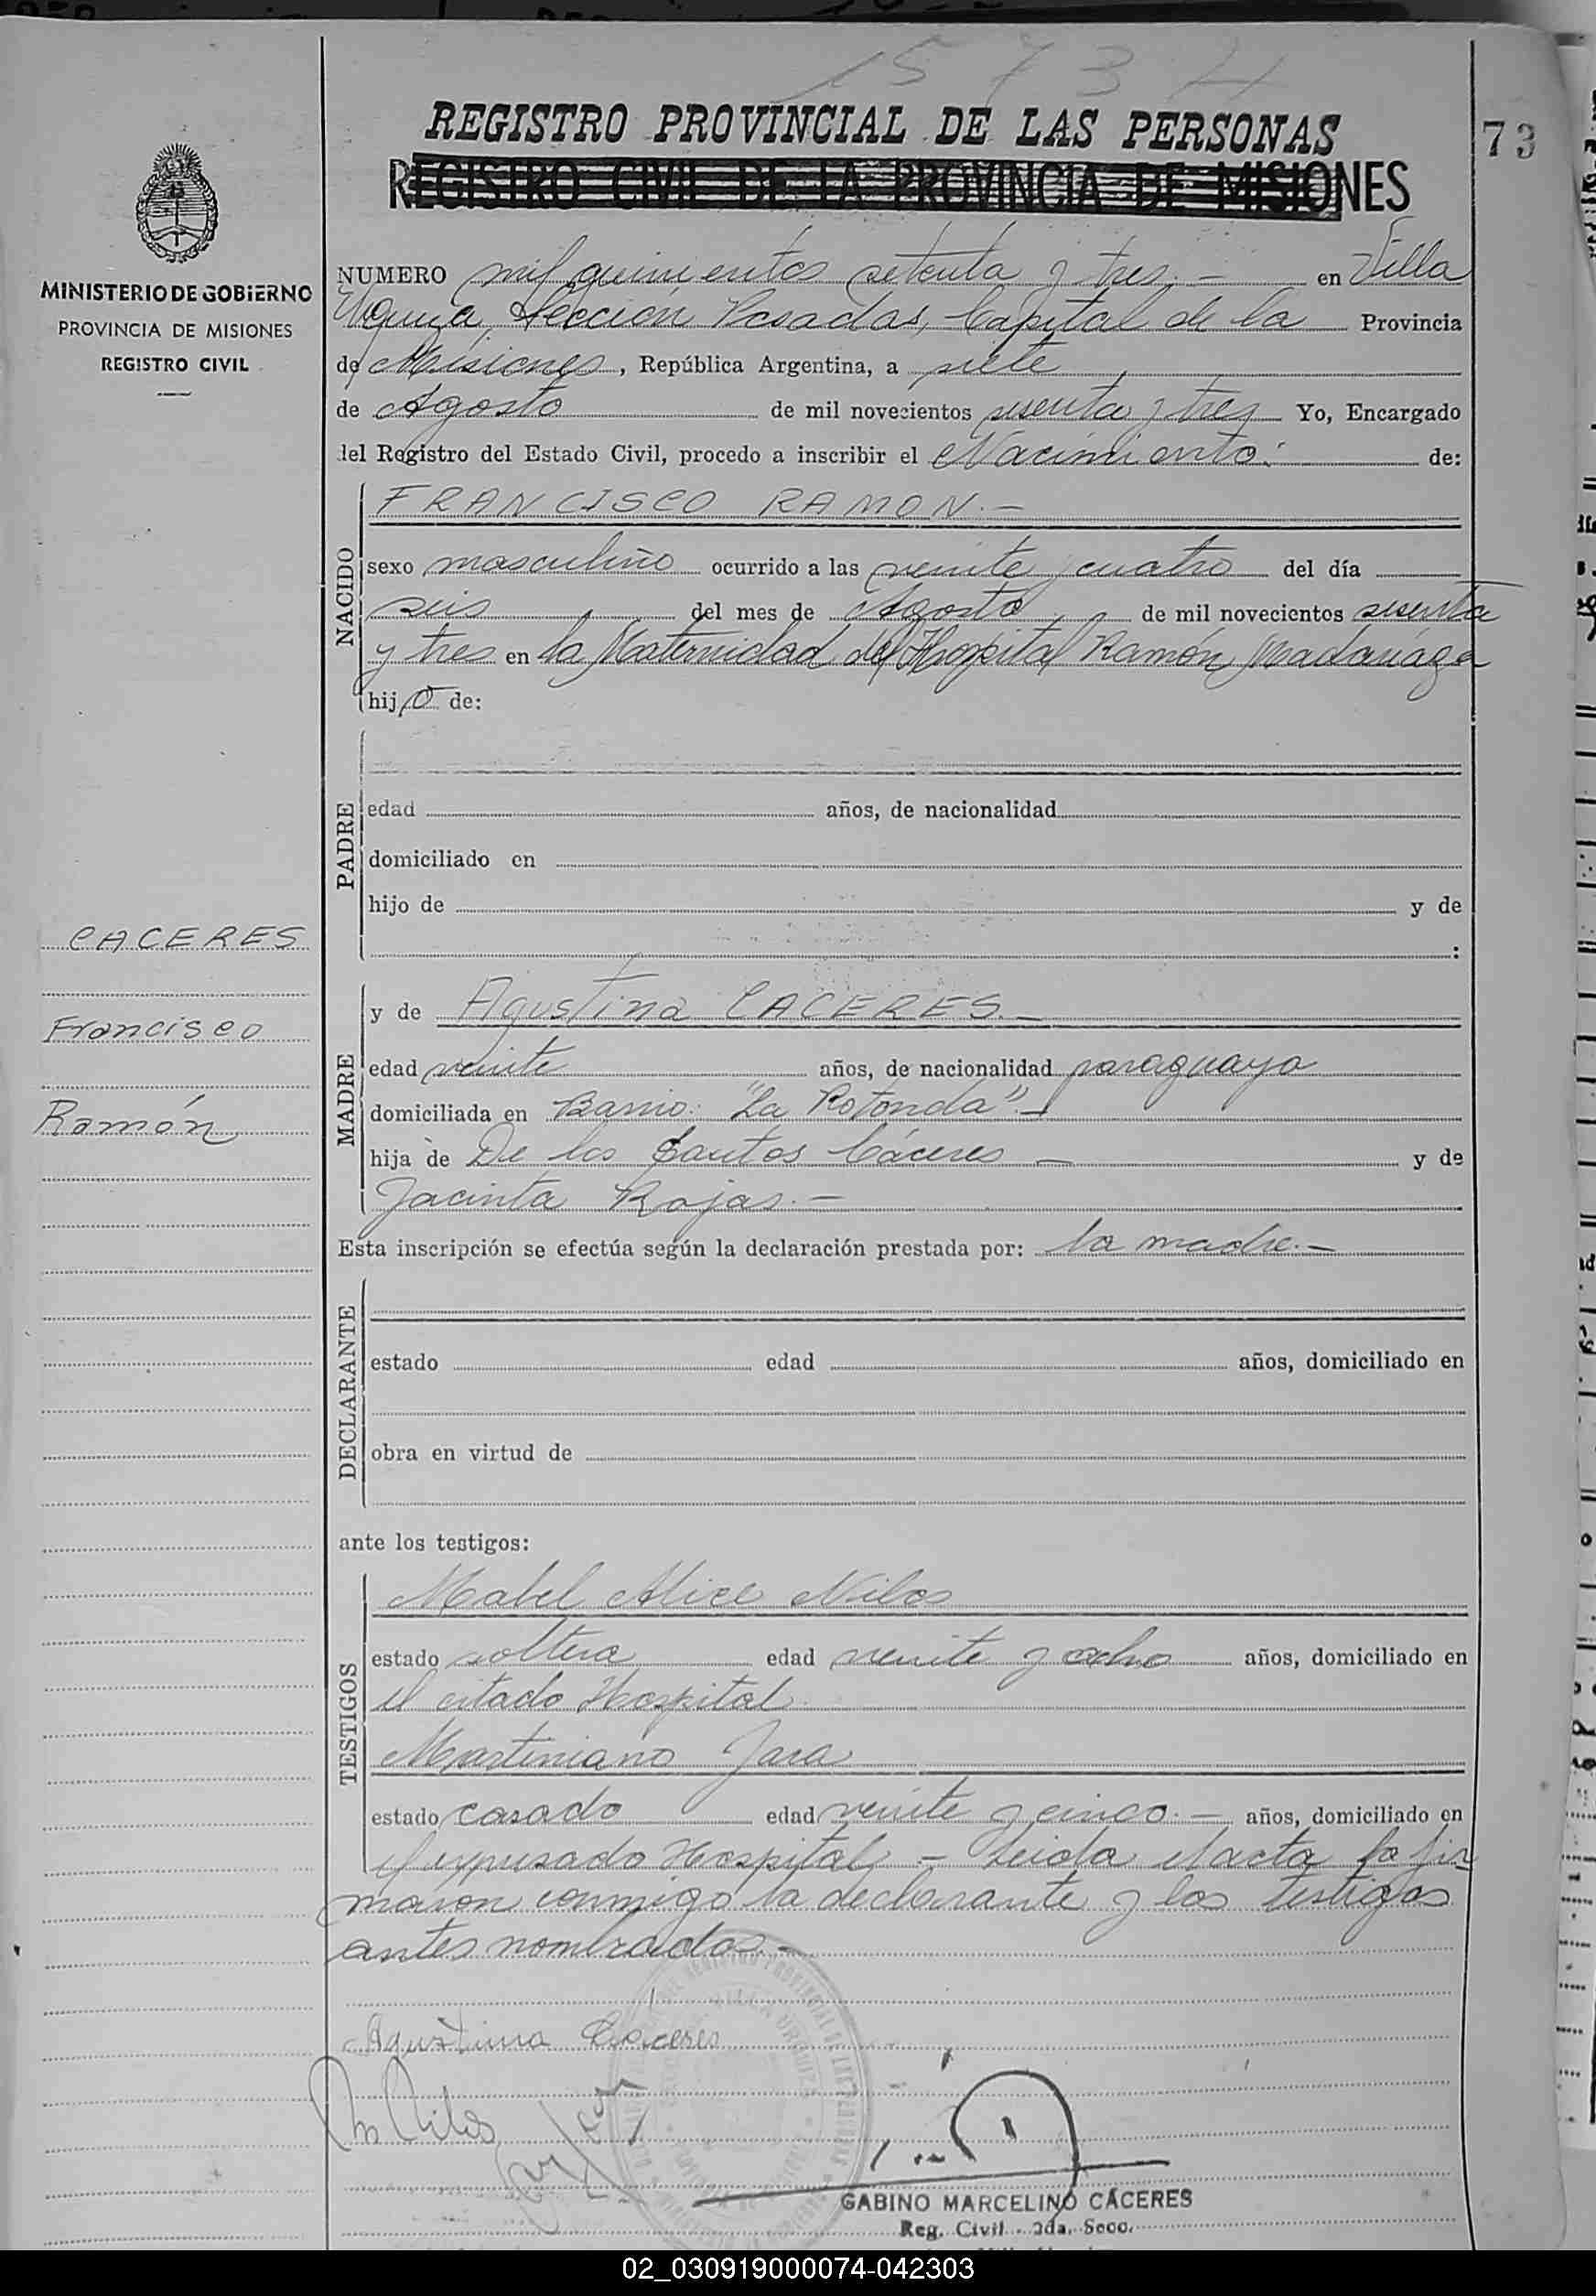 1573
REGISTRO PROVINCIAL DE LAS PERSONAS
73
REGISTRO CIVIL DE LA PROVINCIA DE MISIONES
MINISTERIO DE GOBIERNO
PROVINCIA DE MISIONES
REGISTRO CIVIL
NUMERO mil quinientos setenta y tres.- en Villa
Urquiza, Sección Posadas, Capital de la Provincia
de Misiones, República Argentina, a siete
de Agosto de mil novecientos sesenta y tres Yo, Encargado
del Registro del Estado Civil, procedo a inscribir el Nacimiento. de:
NACIDO
FRANCISCO RAMON.-
sexo masculino ocurrido a las veinte y cuatro del día
seis del mes de Agosto de mil novecientos sesenta
y tres en la Maternidad del Hospital Ramón Madariaga
hijo de:
PADRE
edad años, de nacionalidad
domiciliado en
hijo de y de
:
CACERES
Francisco
Ramón
MADRE
y de Agustina CACERES.-
edad veinte años, de nacionalidad paraguaya
domiciliada en Barrio: "La Rotonda".-
hija de De los Santos Cáceres - y de
Jacinta Rojas.-
Esta inscripción se efectúa según la declaración prestada por: la madre.-
DECLARANTE
estado edad años, domiciliado en
obra en virtud de
ante los testigos:
TESTIGOS
Mabel Alice Nilos
estado soltera edad veinte y ocho años, domiciliado en
el citado Hospital.
Martiniano Jara
estado casado edad veinte y cinco.- años, domiciliado en
el expresado Hospital,- Leida el acta la fir
maron conmigo la declarante y los testigos
antes nombrados.-
Agustina Caceres
GABINO MARCELINO CÁCERES
Reg. Civil - 2da. Secc.
02_030919000074-042303